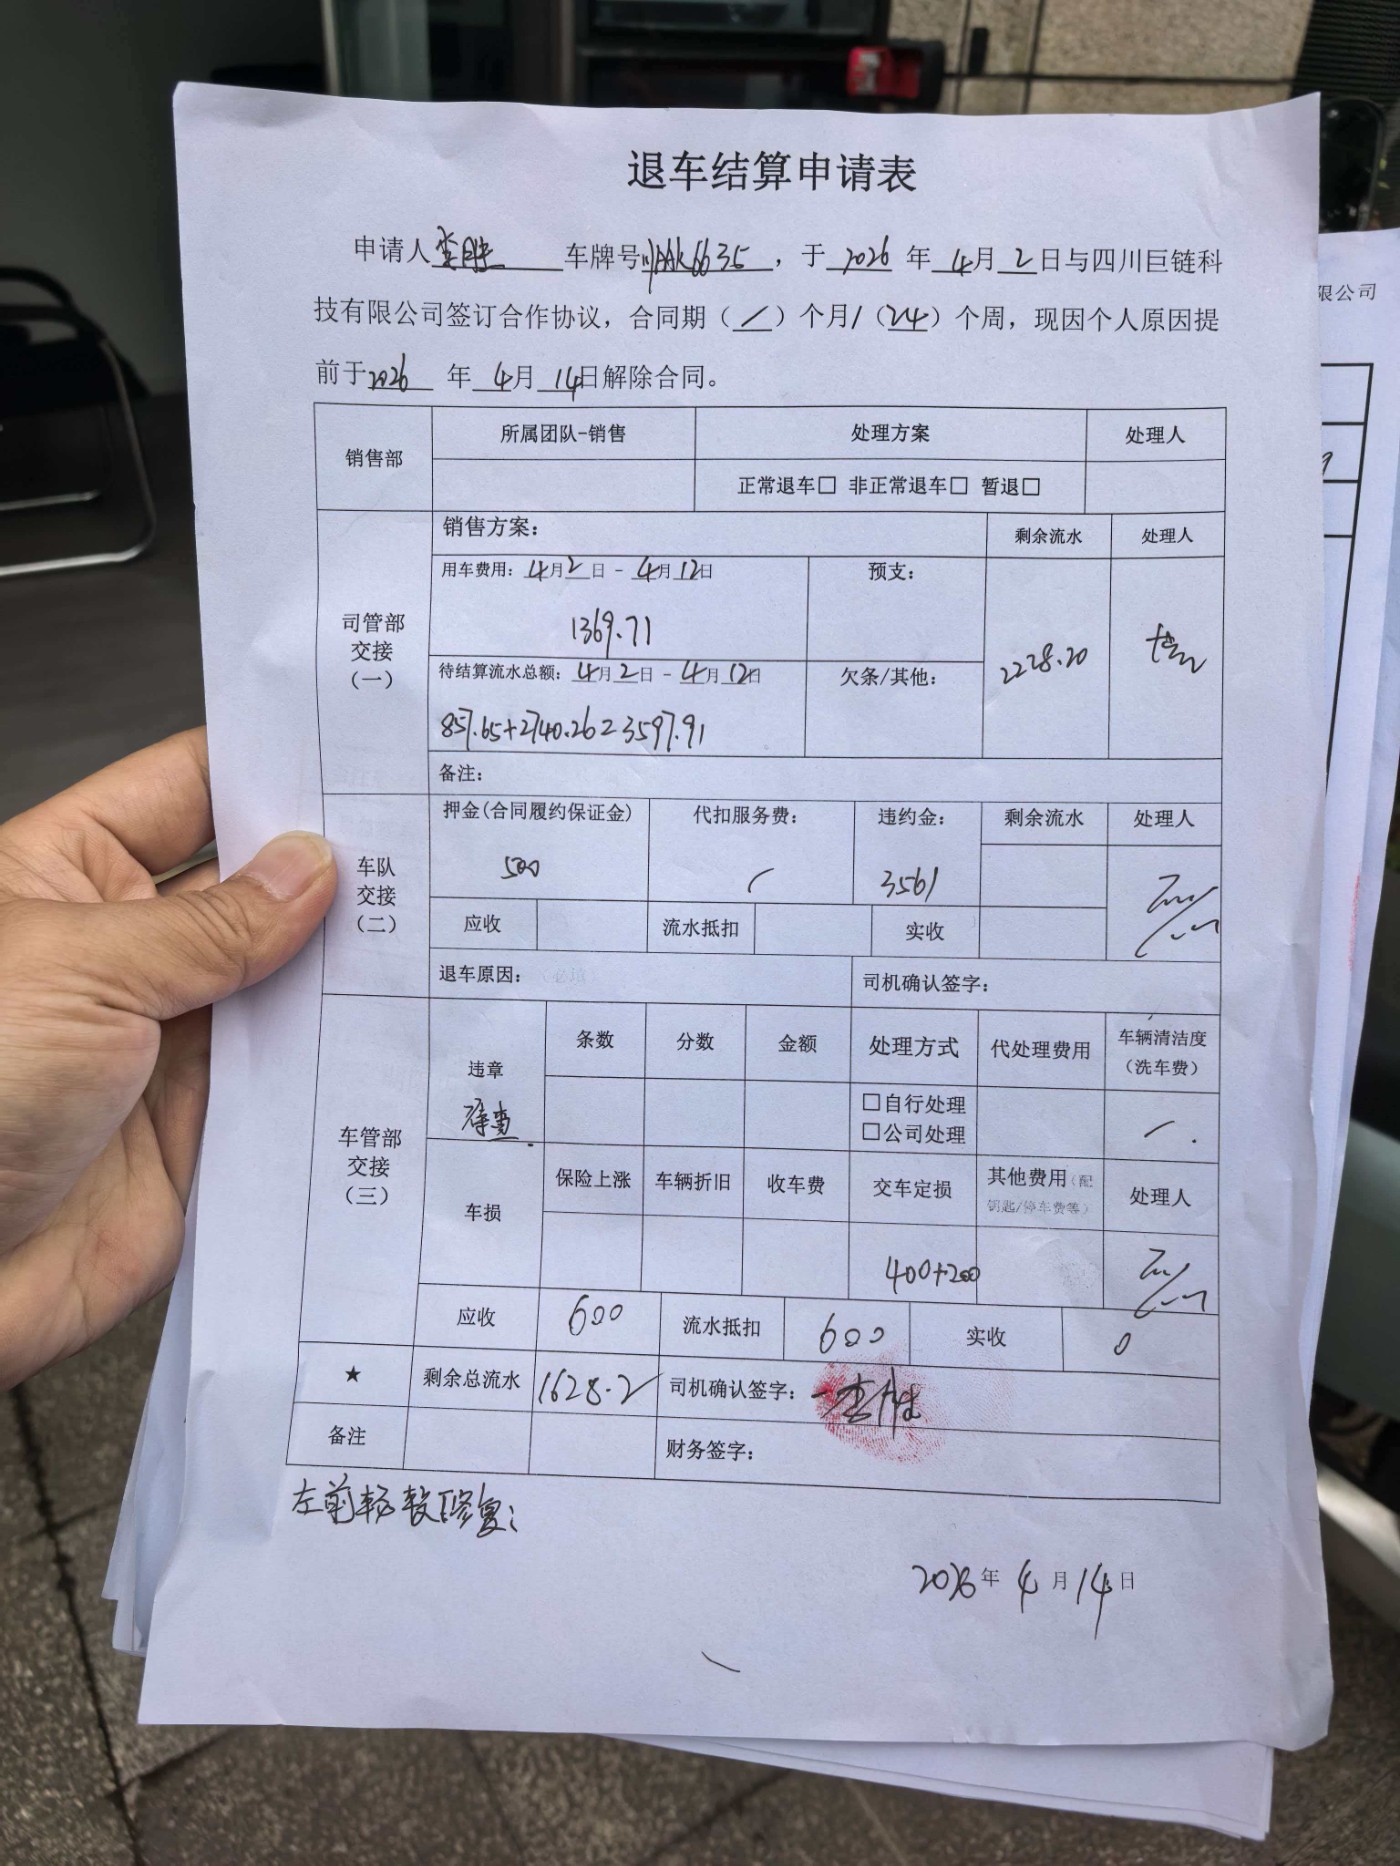 退车结算申请表
申请人李胜 车牌号川AAK6635，于2026年4月2日与四川巨链科
限公司
技有限公司签订合作协议，合同期（/）个月/（24）个周，现因个人原因提
前于2026年4月14日解除合同。
销售部 所属团队-销售 处理方案 处理人
正常退车□ 非正常退车□ 暂退□
司管部交接（一） 销售方案： 剩余流水 处理人
用车费用：4月2日-4月12日 预支：
1369.71
2228.20
待结算流水总额：4月2日-4月12日 欠条/其他：
857.65+2740.26=3597.91
备注：
车队交接（二） 押金(合同履约保证金) 代扣服务费： 违约金： 剩余流水 处理人
500 / 3561
应收 流水抵扣 实收
退车原因：（必填 司机确认签字：
车管部交接（三） 违章 条数 分数 金额 处理方式 代处理费用 车辆清洁度（洗车费）
待查 □自行处理 /.
□公司处理
车损 保险上涨 车辆折旧 收车费 交车定损 其他费用（配钥匙/停车费等） 处理人
400+200
应收 600 流水抵扣 600 实收 0
★ 剩余总流水 1628.2 司机确认签字：李胜
备注 财务签字：
左前杨较修复；
2026年4月14日